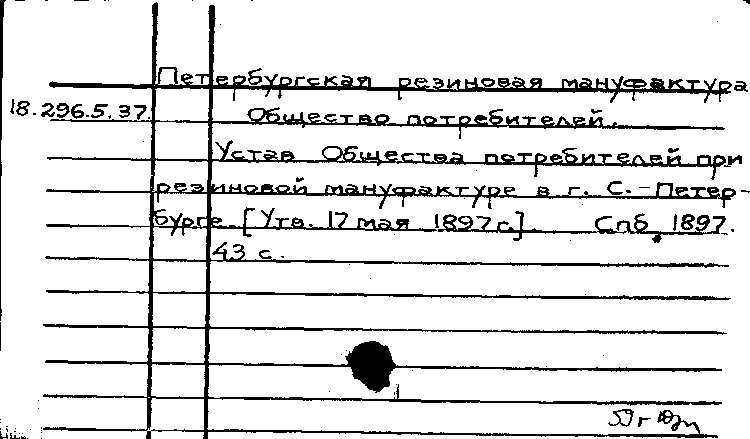 Петербургская резиновая мануфактура
18.296.5.37. Общество потребителей.
Устав Общества потребителей при
резиновой мануфактуре в г. С.-Петер-
бурге. [Утв. 17 мая 1897 г.]. Спб, 1897.
43 с.
59 г